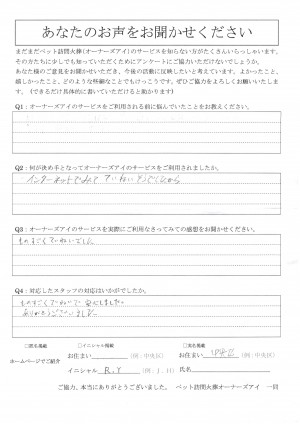 あなたのお声をお聞かせください
まだまだペット訪問火葬(オーナーズアイ)のサービスを知らない方がたくさんいらっしゃいます。
その方たちに少しでも知っていただくためにアンケートにご協力いただけないでしょうか。
あなた様のご意見をお聞かせいただき、今後の活動に反映したいと考えています。よかったこと、
嬉しかったこと、どのような些細なことでもけっこうです。ぜひご協力をよろしくお願いいたしま
す。(できるだけ具体的に書いていただけると助かります。)
Q1:オーナーズアイのサービスをご利用される前に悩んでいたことをお教えください。
Q2:何が決め手となってオーナーズアイのサービスをご利用されましたか。
インターネットでみて ていねいそうでしたから
Q3:オーナーズアイのサービスを実際にご利用なさってみての感想をお聞かせください。
ものすごくていねいでした
Q4:対応したスタッフの対応はいかがでしたか。
ものすごくていねいで 安心しました。
ありがとうございました
□匿名掲載 □イニシャル掲載 □実名掲載
お住まい (例:中央区) お住まい 中央区 (例:中央区)
ホームページでご紹介
イニシャル R.Y (例:J.H) 氏名
ご協力、本当にありがとうございました。 ペット訪問火葬オーナーズアイ 一同